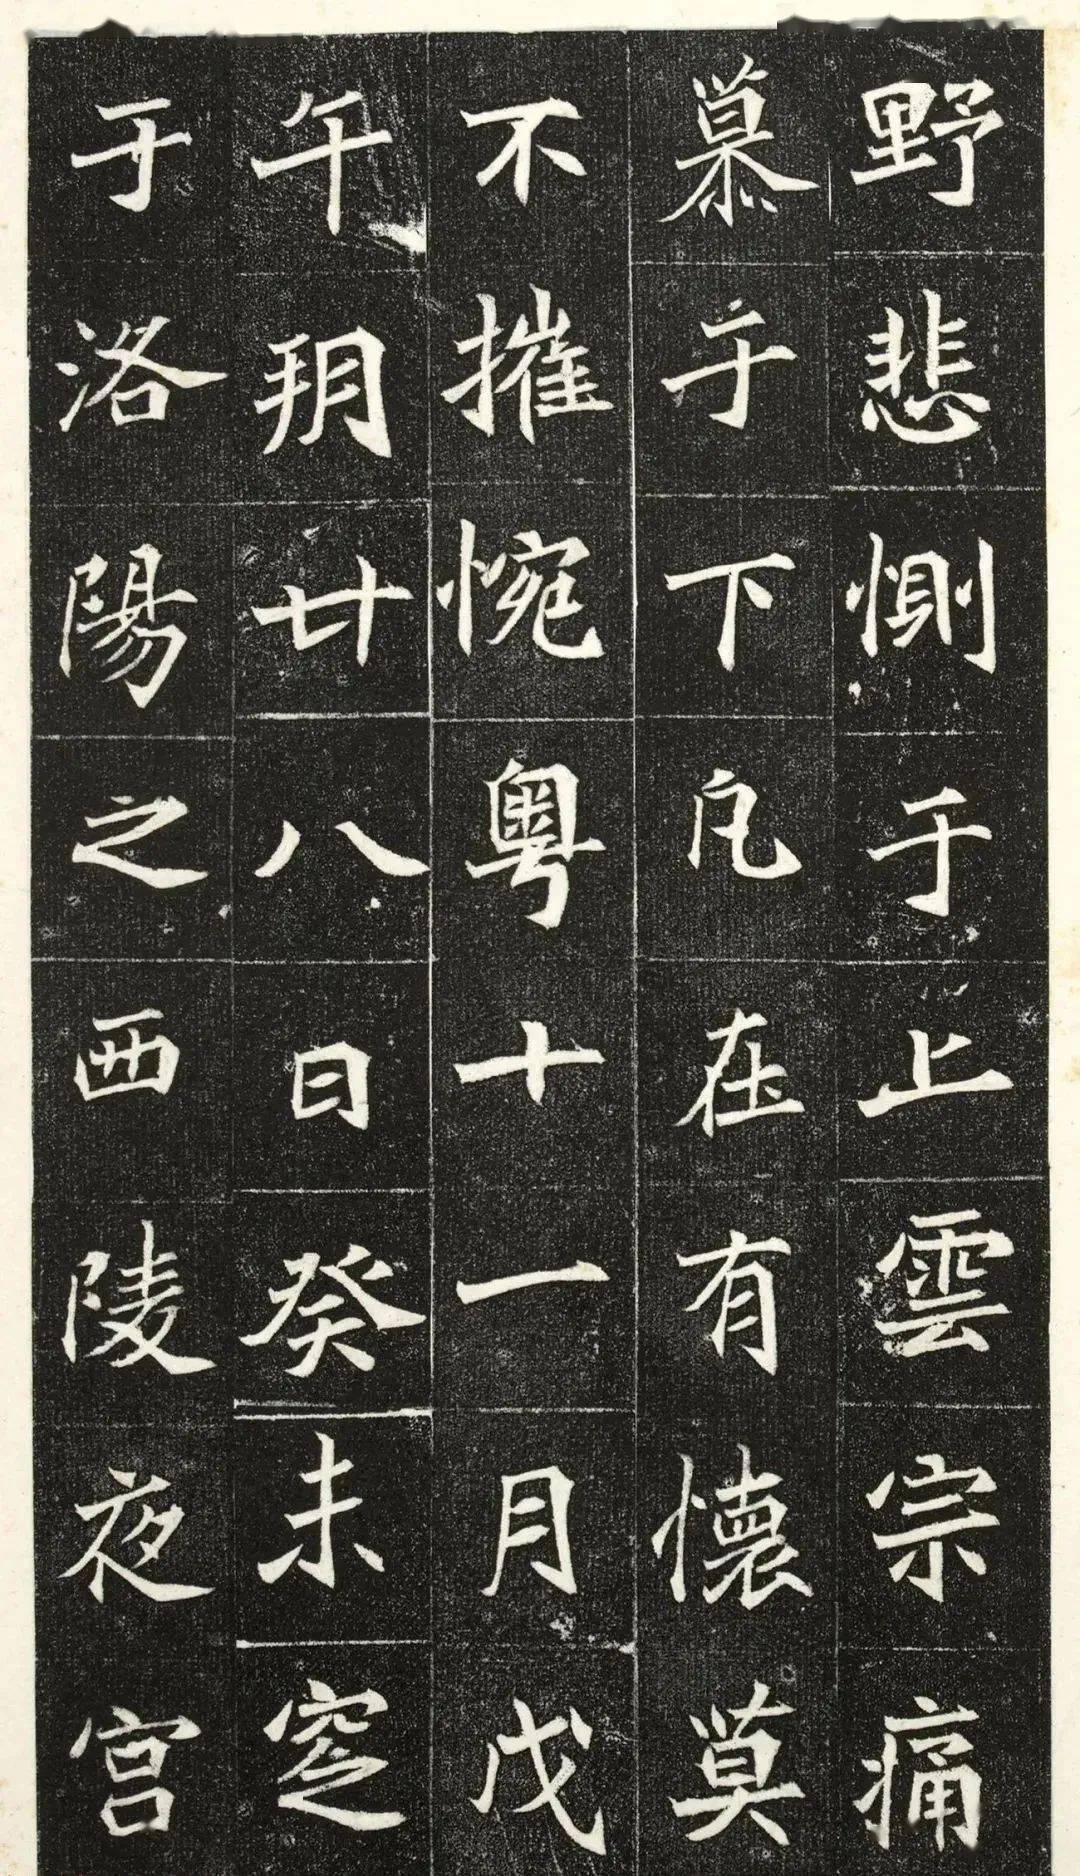 野悲惻于上雲宗痛
慕于下凡在有懷莫
不摧惋粤十一月戊
午朔廿八日癸未窆
于洛陽之西陵夜宮